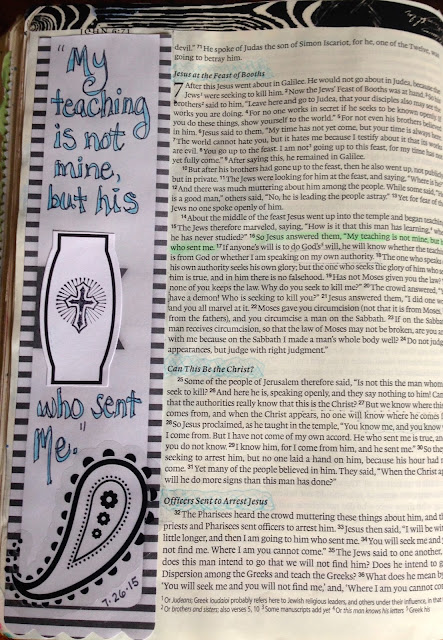 JOHN 6:71
"My
teaching
is not
mine,
but his
who sent
Me."
7-26-15
devil." 71 He spoke of Judas the son of Simon Iscariot, for he, one of the Twelve, was
going to betray him.
Jesus at the Feast of Booths
7 After this Jesus went about in Galilee. He would not go about in Judea, because
Jews were seeking to kill him. 2 Now the Jews' Feast of Booths was at hand.
brothers said to him, "Leave here and go to Judea, that your disciples also may see
works you are doing. 4 For no one works in secret if he seeks to be known openly.
you do these things, show yourself to the world." 5 For not even his brothers
in him. 6 Jesus said to them, "My time has not yet come, but your time is always
7 The world cannot hate you, but it hates me because I testify about it that its works
are evil. 8 You go up to the feast. I am not going up to this feast, for my time has not
yet fully come." 9 After saying this, he remained in Galilee.
10 But after his brothers had gone up to the feast, then he also went up, not publicly
but in private. 11 The Jews were looking for him at the feast, and saying, "Where is he?"
12 And there was much muttering about him among the people. While some said,
is a good man," others said, "No, he is leading the people astray." 13 Yet for fear of the
Jews no one spoke openly of him.
14 About the middle of the feast Jesus went up into the temple and began teaching.
15 The Jews therefore marveled, saying, "How is it that this man has learning, when
he has never studied?" 16 So Jesus answered them, "My teaching is not mine, but his
who sent me. 17 If anyone's will is to do God's will, he will know whether the teaching
is from God or whether I am speaking on my own authority. 18 The one who speaks
his own authority seeks his own glory; but the one who seeks the glory of him who
him is true, and in him there is no falsehood. 19 Has not Moses given you the law?
none of you keeps the law. Why do you seek to kill me?" 20 The crowd answered, "You
have a demon! Who is seeking to kill you?" 21 Jesus answered them, "I did one work,
and you all marvel at it. 22 Moses gave you circumcision (not that it is from Moses,
from the fathers), and you circumcise a man on the Sabbath. 23 If on the Sabbath
man receives circumcision, so that the law of Moses may not be broken, are you angry
with me because on the Sabbath I made a man's whole body well? 24 Do not judge
appearances, but judge with right judgment."
Can This Be the Christ?
25 Some of the people of Jerusalem therefore said, "Is not this the man whom
seek to kill? 26 And here he is, speaking openly, and they say nothing to him! Can
that the authorities really know that this is the Christ? 27 But we know where this
comes from, and when the Christ appears, no one will know where he comes
28 So Jesus proclaimed, as he taught in the temple, "You know me, and you know
I come from. But I have not come of my own accord. He who sent me is true, and
you do not know. 29 I know him, for I come from him, and he sent me." 30 So they
seeking to arrest him, but no one laid a hand on him, because his hour had
come. 31 Yet many of the people believed in him. They said, "When the Christ appears,
will he do more signs than this man has done?"
Officers Sent to Arrest Jesus
32 The Pharisees heard the crowd muttering these things about him, and the
priests and Pharisees sent officers to arrest him. 33 Jesus then said, "I will be with
little longer, and then I am going to him who sent me. 34 You will seek me and
not find me. Where I am you cannot come." 35 The Jews said to one another,
does this man intend to go that we will not find him? Does he intend to go
Dispersion among the Greeks and teach the Greeks? 36 What does he mean by
'You will seek me and you will not find me,' and, 'Where I am you cannot
1 Or Judeans; Greek Ioudaioi probably refers here to Jewish religious leaders, and others under their influence, in that
2 Or brothers and sisters; also verses 5, 10 3 Some manuscripts add yet 4 Or this man knows his letters 5 Greek his